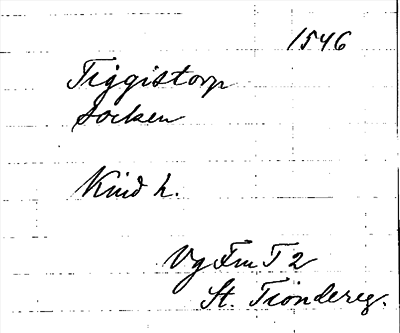 1546
Tiggistorp
Socken
Kind h.
Vg Fru T 2
St. Tiondereg.